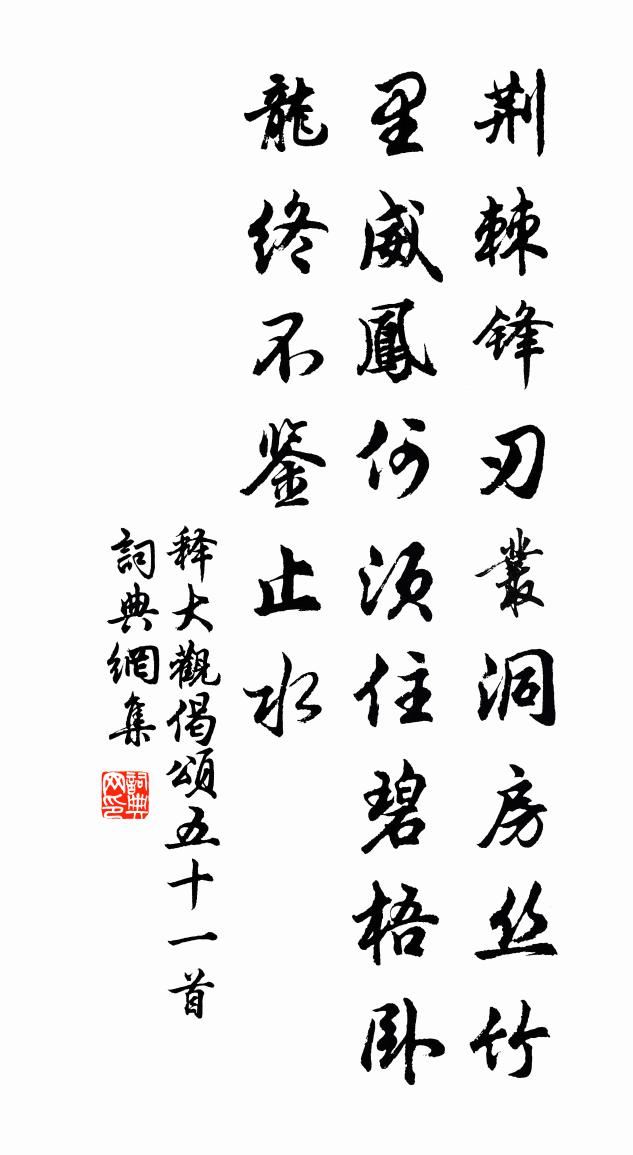 荆棘锋刃丛洞房丝竹
里威鳳何须住碧梧卧
龍终不鉴止水
释大觀偈頌五十一首
詞典網集
詞典网印